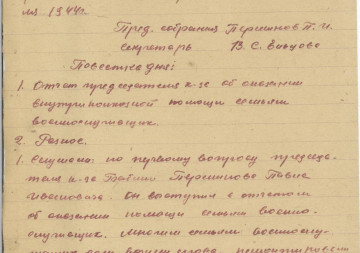 1944г.
Пред. собрания Першинов П. И.
секретарь В. С.
Повестка дня:
1. Отчет председателя к-за об оказании
внутриколхозной помощи семьям
военнослужащих.
2. Разное.
1. Слушали: по первому вопросу председа-
теля к-за Першинова Павла
Ивановича. Он выступил с отчетом
об оказании помощи семьям военно-
служащих. Многим семьям военнослу-